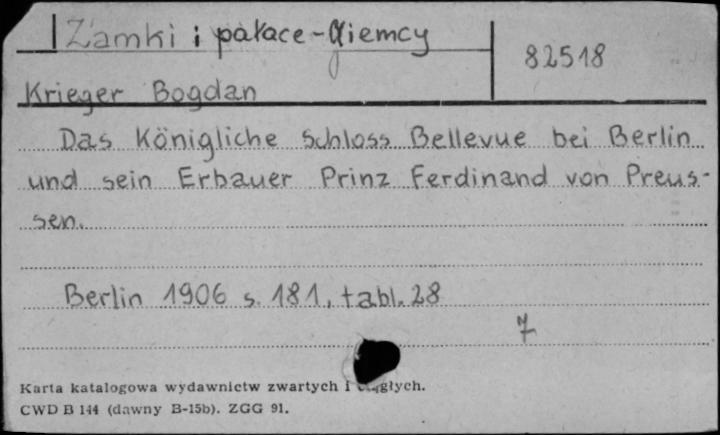 Zamki i pałace - Niemcy
82518
Krieger Bogdan
Das Königliche Schloss Bellevue bei Berlin
und sein Erbauer Prinz Ferdinand von Preus-
sen.
Berlin 1906 s. 181, tabl. 28
7
Karta katalogowa wydawnictw zwartych i głych.
CWD B 144 (dawny B-15b). ZGG 91.